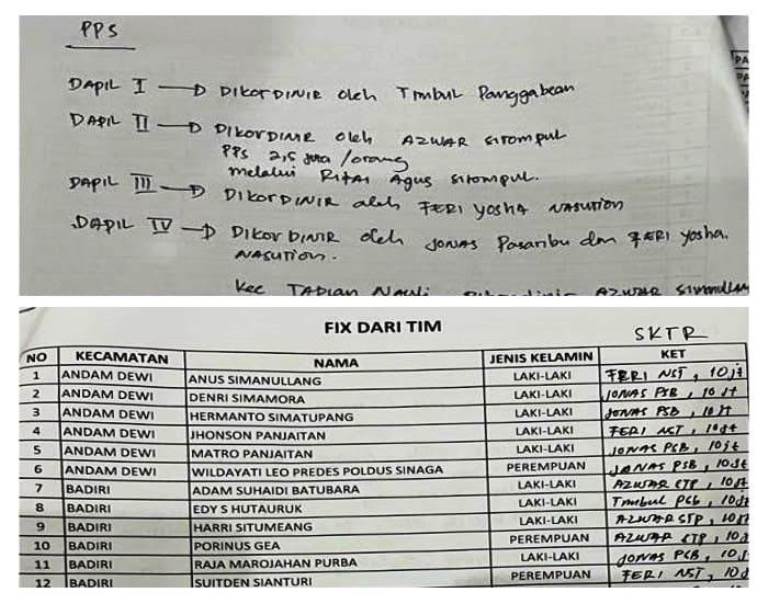 PPS
DAPIL I → DIKORDINIR oleh Timbul Panggabean
DAPIL II → DIKORDINIR oleh AZWAR sitompul
PPS 2,5 juta /orang
melalui Agus sitompul.
DAPIL III → DIKORDINIR oleh FERI yosha NASUTION
DAPIL IV → DIKORDINIR oleh JONAS Pasaribu dan FERI yosha.
NASUTION.
Kec TAPIAN NAULI AZWAR
PA
FIX DARI TIM
SKTR
NO KECAMATAN NAMA JENIS KELAMIN KET
1 ANDAM DEWI ANUS SIMANULLANG LAKI-LAKI FERI NST, 10jt
2 ANDAM DEWI DENRI SIMAMORA LAKI-LAKI JONAS PSB, 10 jt
3 ANDAM DEWI HERMANTO SIMATUPANG LAKI-LAKI JONAS PSB, 10 jt
4 ANDAM DEWI JHONSON PANJAITAN LAKI-LAKI FERI NST, 10jt
5 ANDAM DEWI MATRO PANJAITAN LAKI-LAKI JONAS PSB, 10jt
6 ANDAM DEWI WILDAYATI LEO PREDES POLDUS SINAGA PEREMPUAN JONAS PSB, 10jt
7 BADIRI ADAM SUHAIDI BATUBARA LAKI-LAKI AZWAR STP, 10jt
8 BADIRI EDY S HUTAURUK LAKI-LAKI Timbul PGB, 10jt
9 BADIRI HARRI SITUMEANG LAKI-LAKI AZWAR STP, 10jt
10 BADIRI PORINUS GEA PEREMPUAN AZWAR STP, 10j
11 BADIRI RAJA MAROJAHAN PURBA LAKI-LAKI JONAS PSB, 10j
12 BADIRI SUITDEN SIANTURI PEREMPUAN FERI NST, 10j